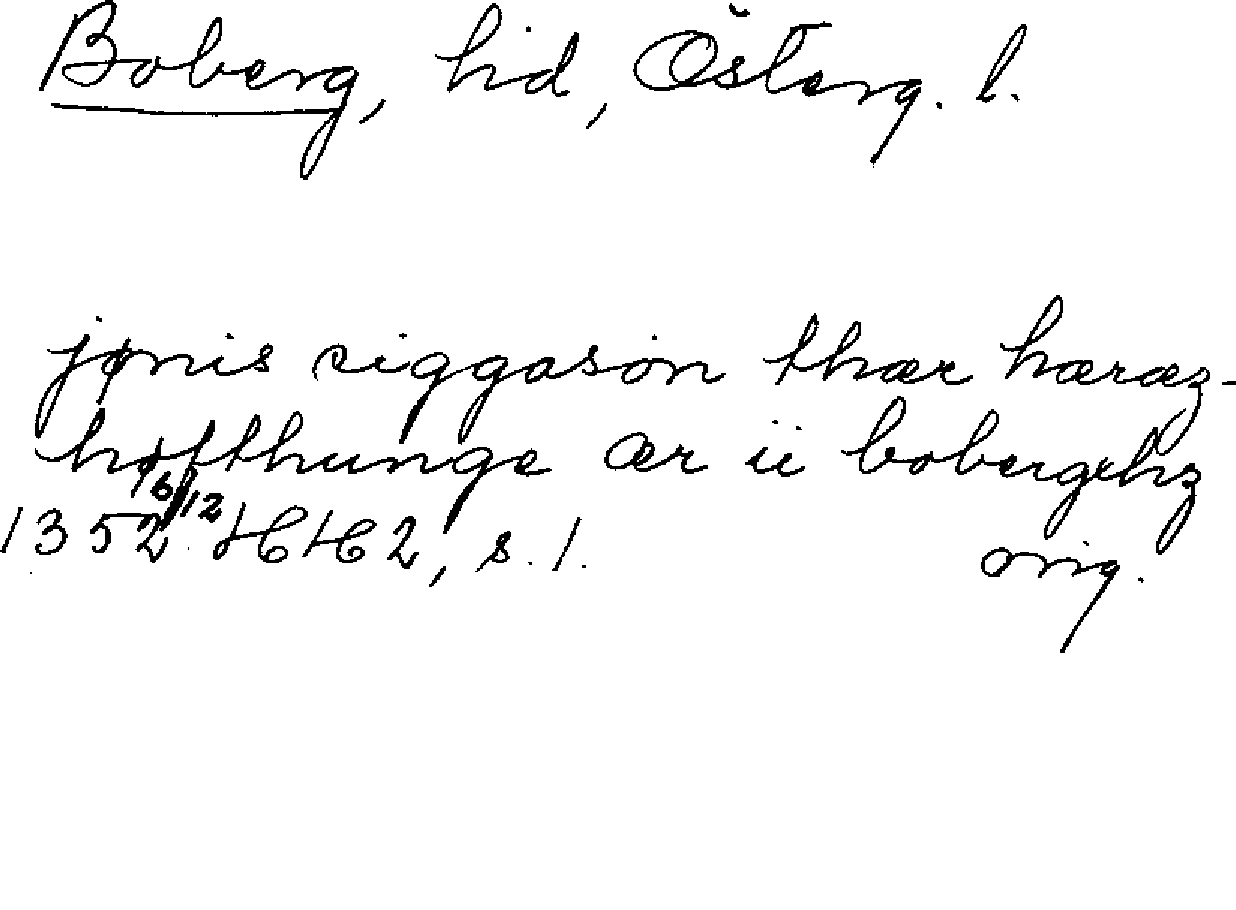 Boberg, hd, Österg. l.
jønis siggason thær hæræz-
høfthunge ær ii bobergehz
1352 16/12 HH 2, s. 1. orig.